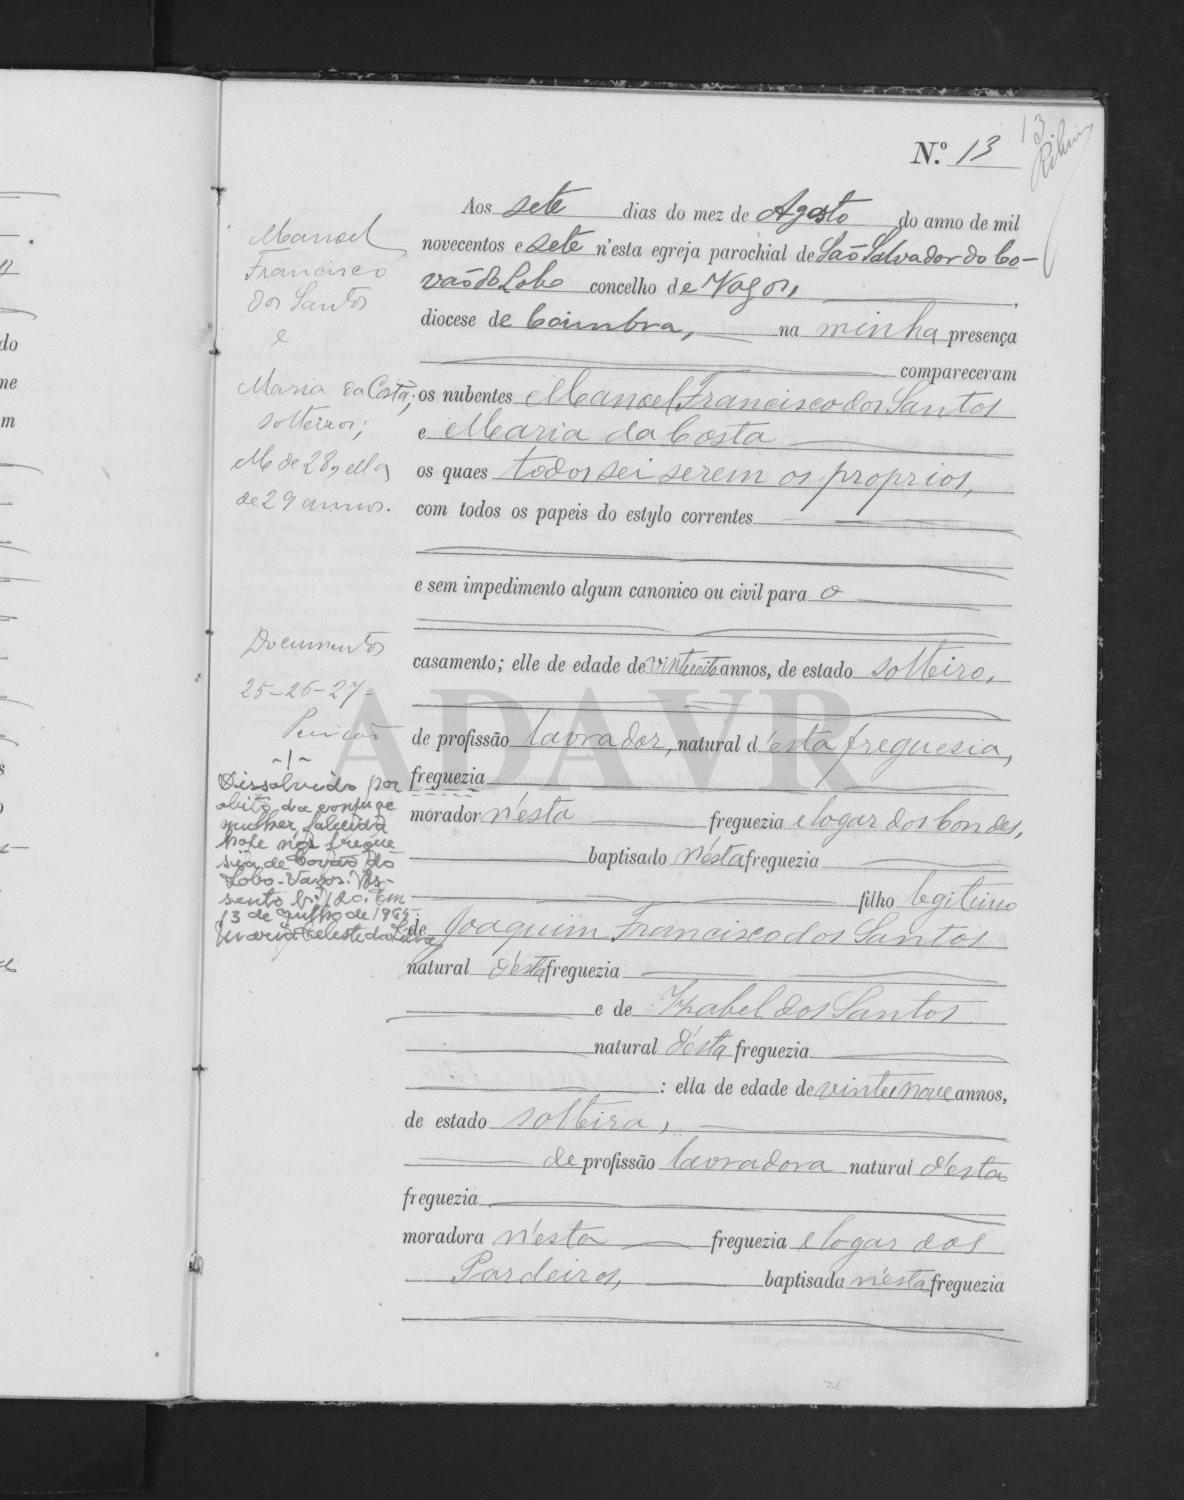 13
N.º 13
Aos sete dias do mez de Agosto do anno de mil
novecentos e sete n'esta egreja parochial de São Salvador do Co-
vão do Lobo concelho de Vagos,
diocese de Coimbra, na minha presença
compareceram
os nubentes Manoel Francisco dos Santos
e Maria da Costa
os quaes todos sei serem os proprios,
com todos os papeis do estylo correntes
e sem impedimento algum canonico ou civil para o
casamento; elle de edade de vinteeoito annos, de estado solteiro,
de profissão lavrador, natural d'esta freguesia,
freguezia
morador n'esta freguezia e logar dos Condes,
baptisado n'esta freguezia
filho legitimo
de Joaquim Francisco dos Santos
natural d'esta freguezia
e de Izabel dos Santos
natural d'esta freguezia
: ella de edade de vinteenove annos,
de estado solteira,
de profissão lavradora natural d'esta
freguezia
moradora n'esta freguezia e logar dos
Pardeiros, baptisada n'esta freguezia
Manoel
Francisco
dos Santos
e
Maria da Costa,
solteiros;
elle de 28, ella
de 29 annos.
Documentos
25-26-27-
-1-
Dissolvido por
obito da conjuge
mulher, falecida
hoje na fregue
sia de Covão do
Lobo-Vagos. As-
sento n.º 120. Em
13 de Julho de
Maria Celeste da Silva
ADAVR
do
me
m